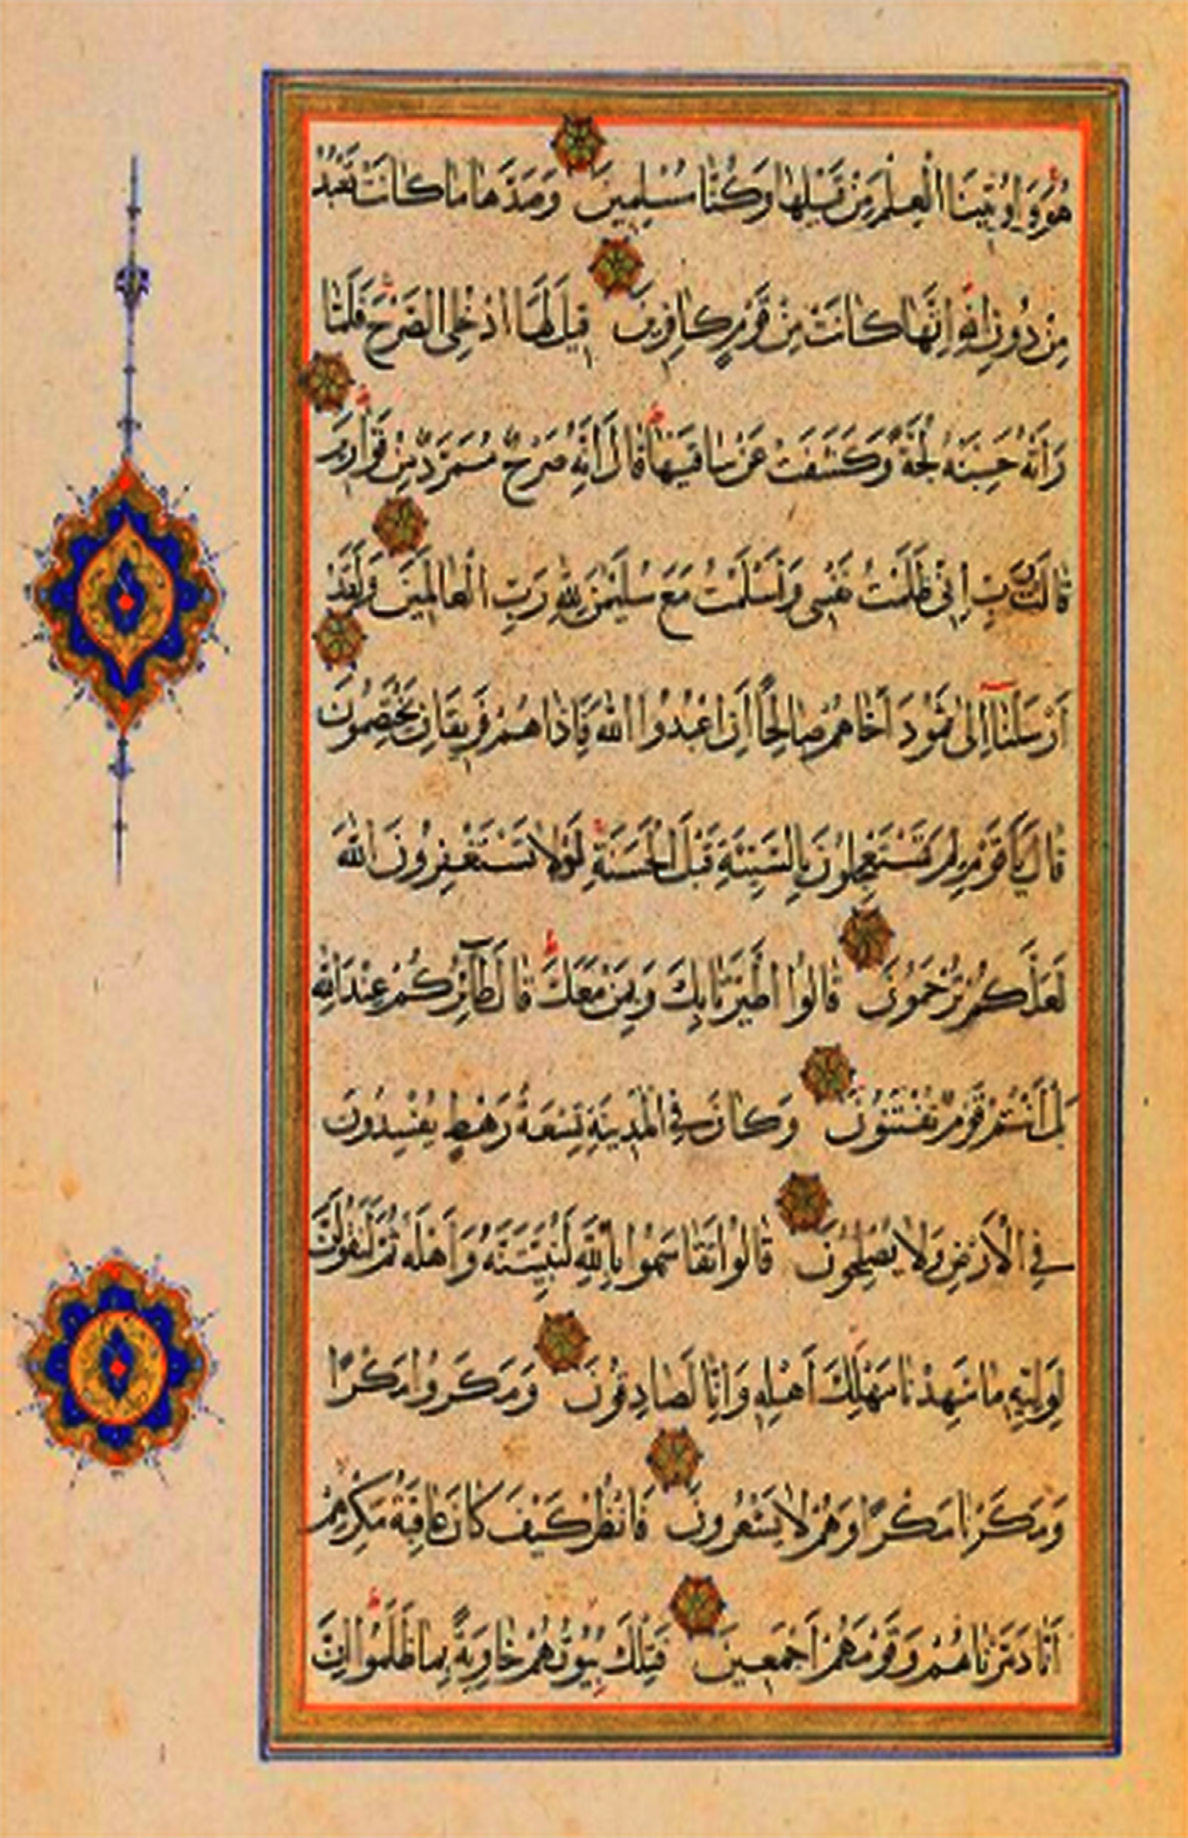 هُوَ وَاُوتِينَا الْعِلْمَ مِنْ قَبْلِهَا وَكُنَّا مُسْلِمِينَ وَصَدَّهَا مَا كَانَتْ تَعْبُدُ
مِنْ دُونِ اللهِ اِنَّهَا كَانَتْ مِنْ قَوْمٍ كَافِرِينَ قِيلَ لَهَا ادْخُلِى الصَّرْحَ فَلَمَّا
رَاَتْهُ حَسِبَتْهُ لُجَّةً وَكَشَفَتْ عَنْ سَاقَيْهَا قَالَ اِنَّهُ صَرْحٌ مُمَرَّدٌ مِنْ قَوَارِيرَ
قَالَتْ رَبِّ اِنِّى ظَلَمْتُ نَفْسِى وَاَسْلَمْتُ مَعَ سُلَيْمٰنَ لِلّٰهِ رَبِّ الْعَالَمِينَ وَلَقَدْ
اَرْسَلْنَا اِلٰى ثَمُودَ اَخَاهُمْ صَالِحًا اَنِ اعْبُدُوا اللهَ فَاِذَا هُمْ فَرِيقَانِ يَخْتَصِمُونَ
قَالَ يَا قَوْمِ لِمَ تَسْتَعْجِلُونَ بِالسَّيِّئَةِ قَبْلَ الْحَسَنَةِ لَوْلَا تَسْتَغْفِرُونَ اللهَ
لَعَلَّكُمْ تُرْحَمُونَ قَالُوا اطَّيَّرْنَا بِكَ وَبِمَنْ مَعَكَ قَالَ طَآئِرُكُمْ عِنْدَ اللهِ
بَلْ اَنْتُمْ قَوْمٌ تُفْتَنُونَ وَكَانَ فِى الْمَدِينَةِ تِسْعَةُ رَهْطٍ يُفْسِدُونَ
فِى الْاَرْضِ وَلَا يُصْلِحُونَ قَالُوا تَقَاسَمُوا بِاللّٰهِ لَنُبَيِّتَنَّهُ وَاَهْلَهُ ثُمَّ لَنَقُولَنَّ
لِوَلِيِّهِ مَا شَهِدْنَا مَهْلِكَ اَهْلِهِ وَاِنَّا لَصَادِقُونَ وَمَكَرُوا مَكْرًا
وَمَكَرْنَا مَكْرًا وَهُمْ لَا يَشْعُرُونَ فَانْظُرْ كَيْفَ كَانَ عَاقِبَةُ مَكْرِهِمْ
اَنَّا دَمَّرْنَاهُمْ وَقَوْمَهُمْ اَجْمَعِينَ فَتِلْكَ بُيُوتُهُمْ خَاوِيَةً بِمَا ظَلَمُوا اِنَّ